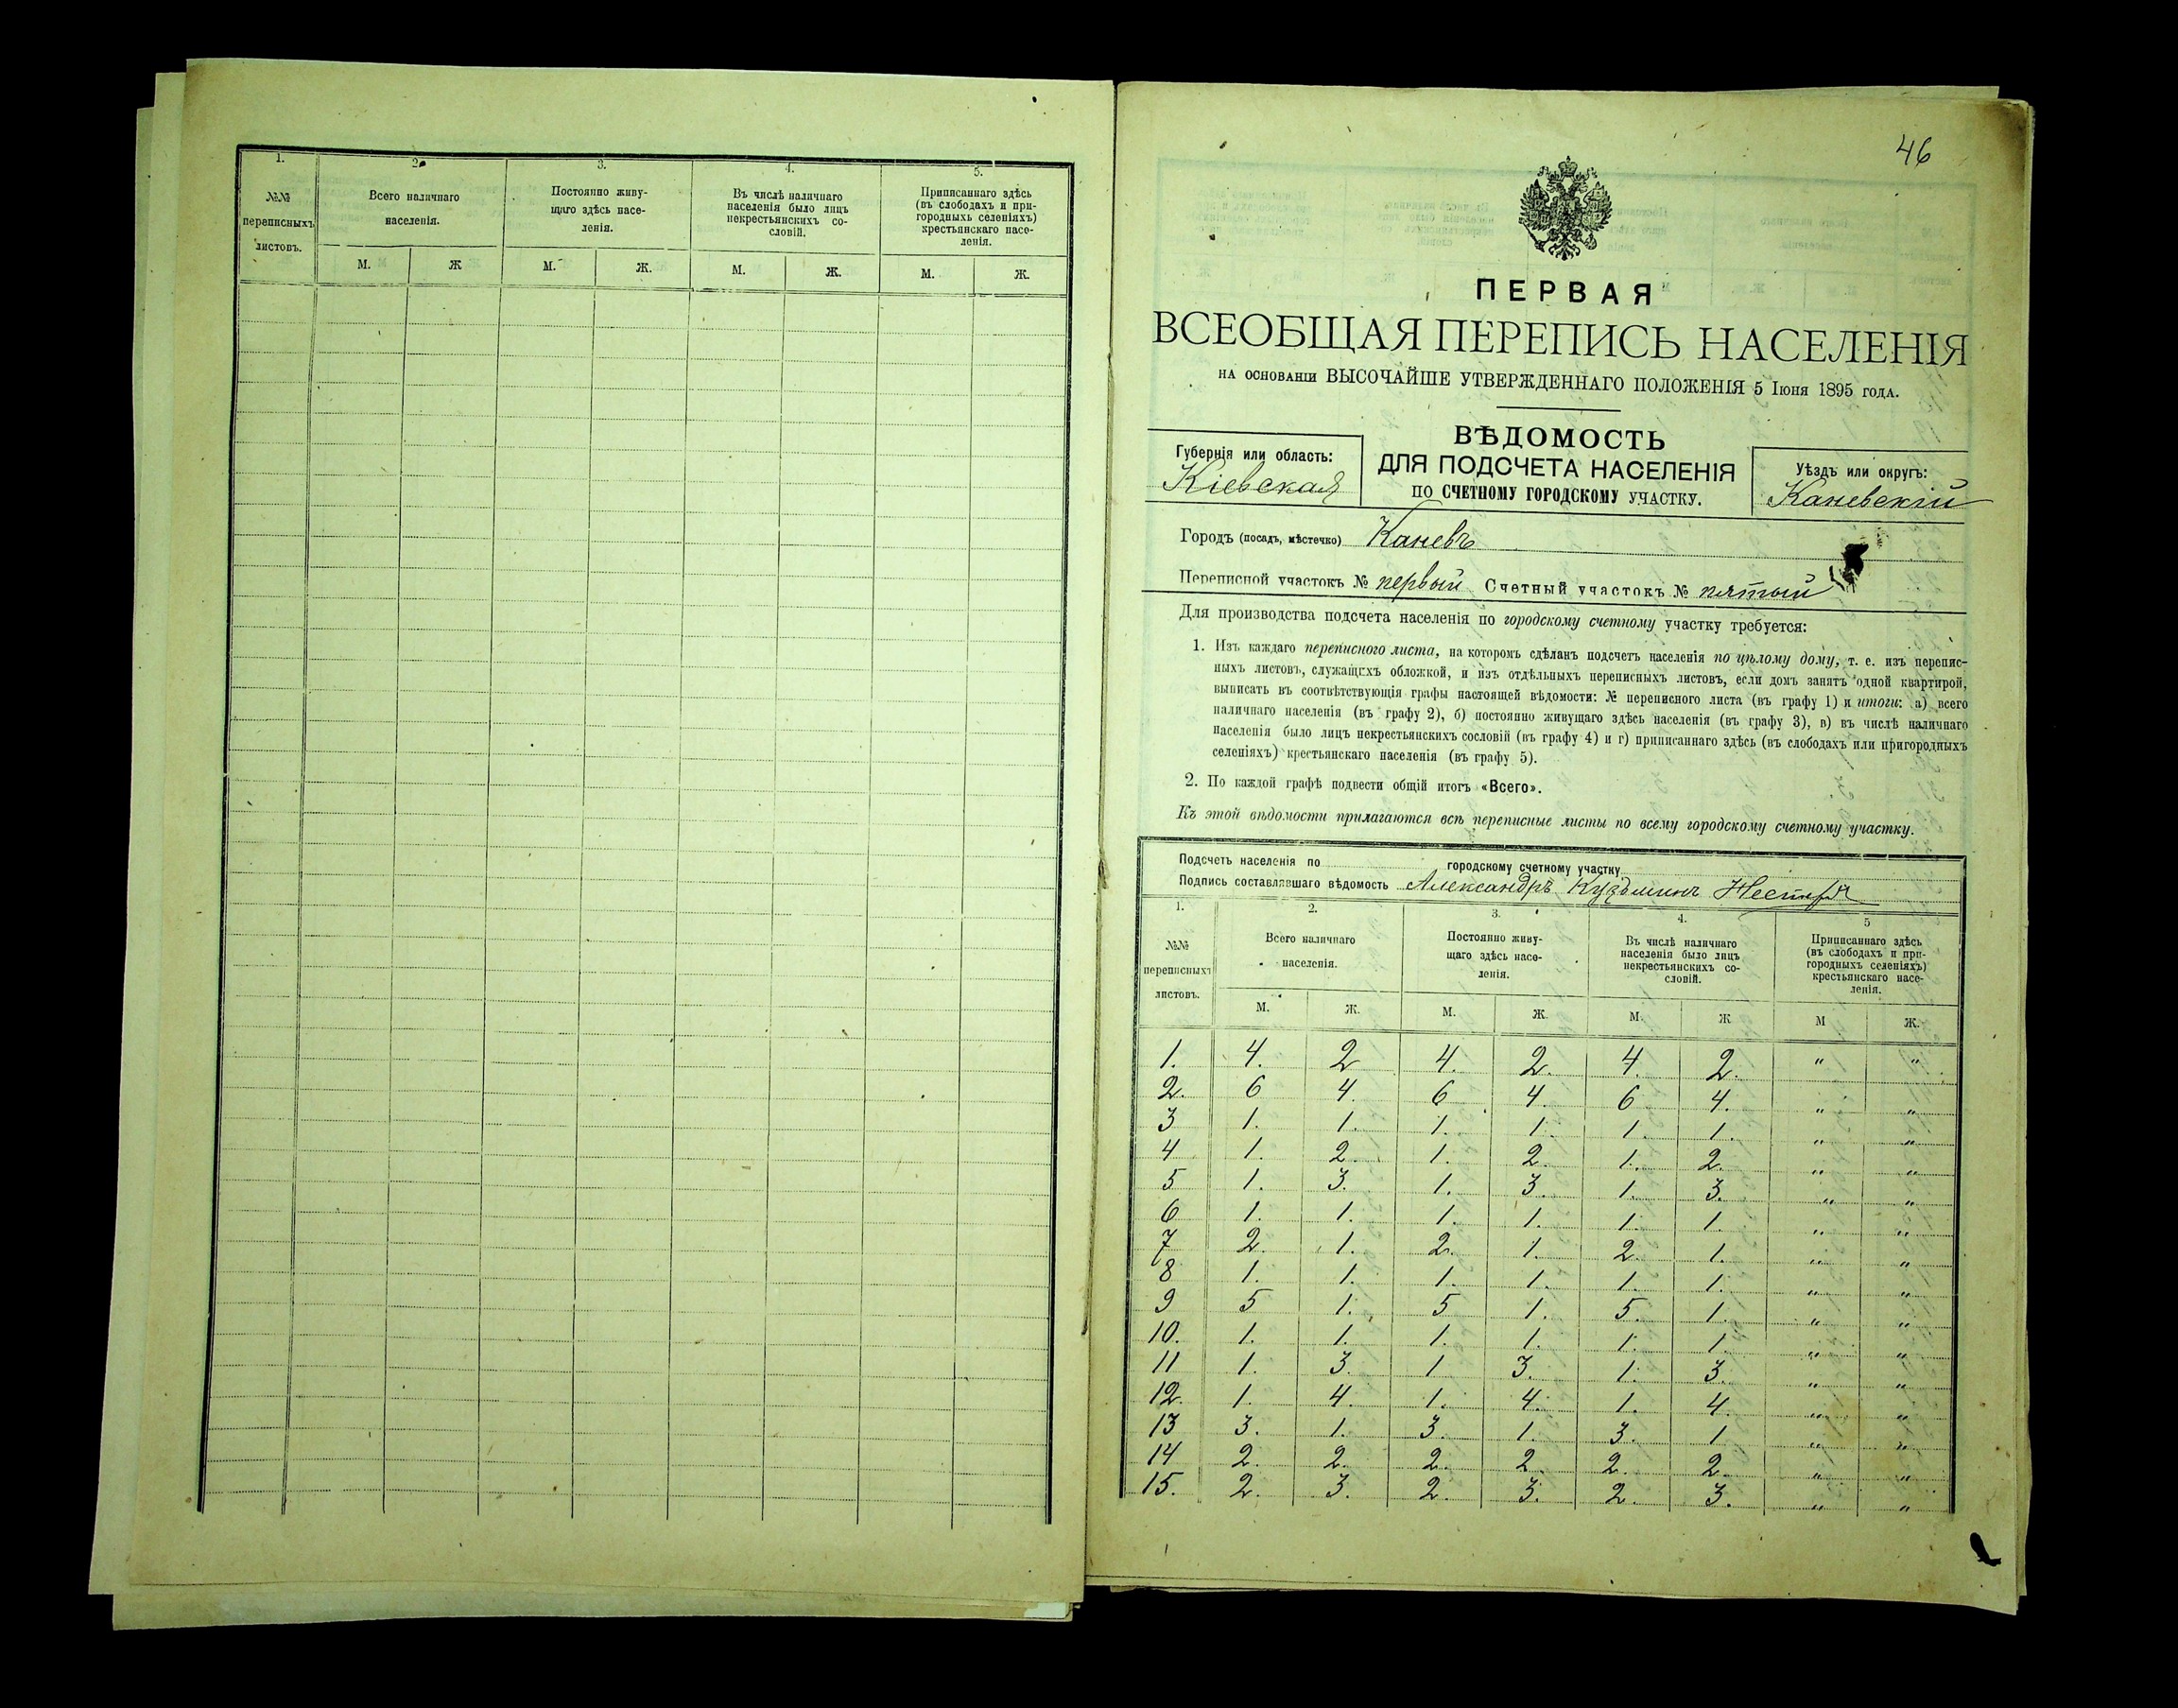 1. 2. 3. 4. 5.
№№ переписныхъ листовъ.
Всего наличнаго населенія.
Постоянно живу-
щаго здѣсь насе-
ленія.
Въ числѣ наличнаго
населенія было лицъ
некрестьянскихъ со-
словій.
Приписаннаго здѣсь
(въ слободахъ и при-
городныхъ селеніяхъ)
крестьянскаго насе-
ленія.
М. Ж М. Ж. М. Ж. М. Ж.
46
ПЕРВАЯ
ВСЕОБЩАЯ ПЕРЕПИСЬ НАСЕЛЕНІЯ
НА ОСНОВАНІИ ВЫСОЧАЙШЕ УТВЕРЖДЕННАГО ПОЛОЖЕНІЯ 5 Іюня 1895 года.
ВѢДОМОСТЬ
ДЛЯ ПОДСЧЕТА НАСЕЛЕНІЯ
ПО СЧЕТНОМУ ГОРОДСКОМУ УЧАСТКУ.
Губернія или область:
Кіевская
Уѣздъ или округъ:
Каневскій
Городъ (посадъ, мѣстечко) Каневъ
Переписной участокъ № первый Счетный участокъ № пятый
Для производства подсчета населенія по городскому счетному участку требуется:
1. Изъ каждаго переписного листа, на которомъ сдѣланъ подсчетъ населенія по цѣлому дому, т. е. изъ перепис-
ныхъ листовъ, служащихъ обложкой, и изъ отдѣльныхъ переписныхъ листовъ, если домъ занятъ одной квартирой,
выписать въ соотвѣтствующія графы настоящей вѣдомости: № переписного листа (въ графу 1) и итоги: а) всего
наличнаго населенія (въ графу 2), б) постоянно живущаго здѣсь населенія (въ графу 3), в) въ числѣ наличнаго
населенія было лицъ некрестьянскихъ сословій (въ графу 4) и г) приписаннаго здѣсь (въ слободахъ или пригородныхъ
селеніяхъ) крестьянскаго населенія (въ графу 5).
2. По каждой графѣ подвести общій итогъ «Всего».
Къ этой вѣдомости прилагаются всѣ переписные листы по всему городскому счетному участку.
Подсчетъ населенія по городскому счетному участку
Подпись составлявшаго вѣдомость Александръ Кузьминъ
1. 2. 3. 4. 5
№№ переписныхъ листовъ.
Всего наличнаго населенія.
Постоянно живу-
щаго здѣсь насе-
ленія.
Въ числѣ наличнаго
населенія было лицъ
некрестьянскихъ со-
словій.
Приписаннаго здѣсь
(въ слободахъ и при-
городныхъ селеніяхъ)
крестьянскаго насе-
ленія.
М. Ж. М. Ж. М. Ж М Ж.
1. 4. 2 4. 2. 4. 2. " "
2. 6 4. 6 4. 6 4. " "
3 1. 1. 1. 1. 1. 1. " "
4 1. 2. 1. 2. 1. 2. " "
5 1. 3. 1. 3. 1. 3. " "
6 1. 1. 1. 1. 1. 1. " "
7 2. 1. 2. 1. 2. 1. " "
8 1. 1. 1. 1. 1. 1. " "
9 5 1. 5 1. 5. 1. " "
10. 1. 1. 1. 1. 1. 1. " "
11 1. 3. 1 3. 1. 3. " "
12. 1. 4. 1. 4. 1. 4. " "
13 3. 1. 3. 1. 3. 1 " "
14 2. 2. 2. 2 2. 2. " "
15. 2. 3. 2. 3. 2. 3. " "